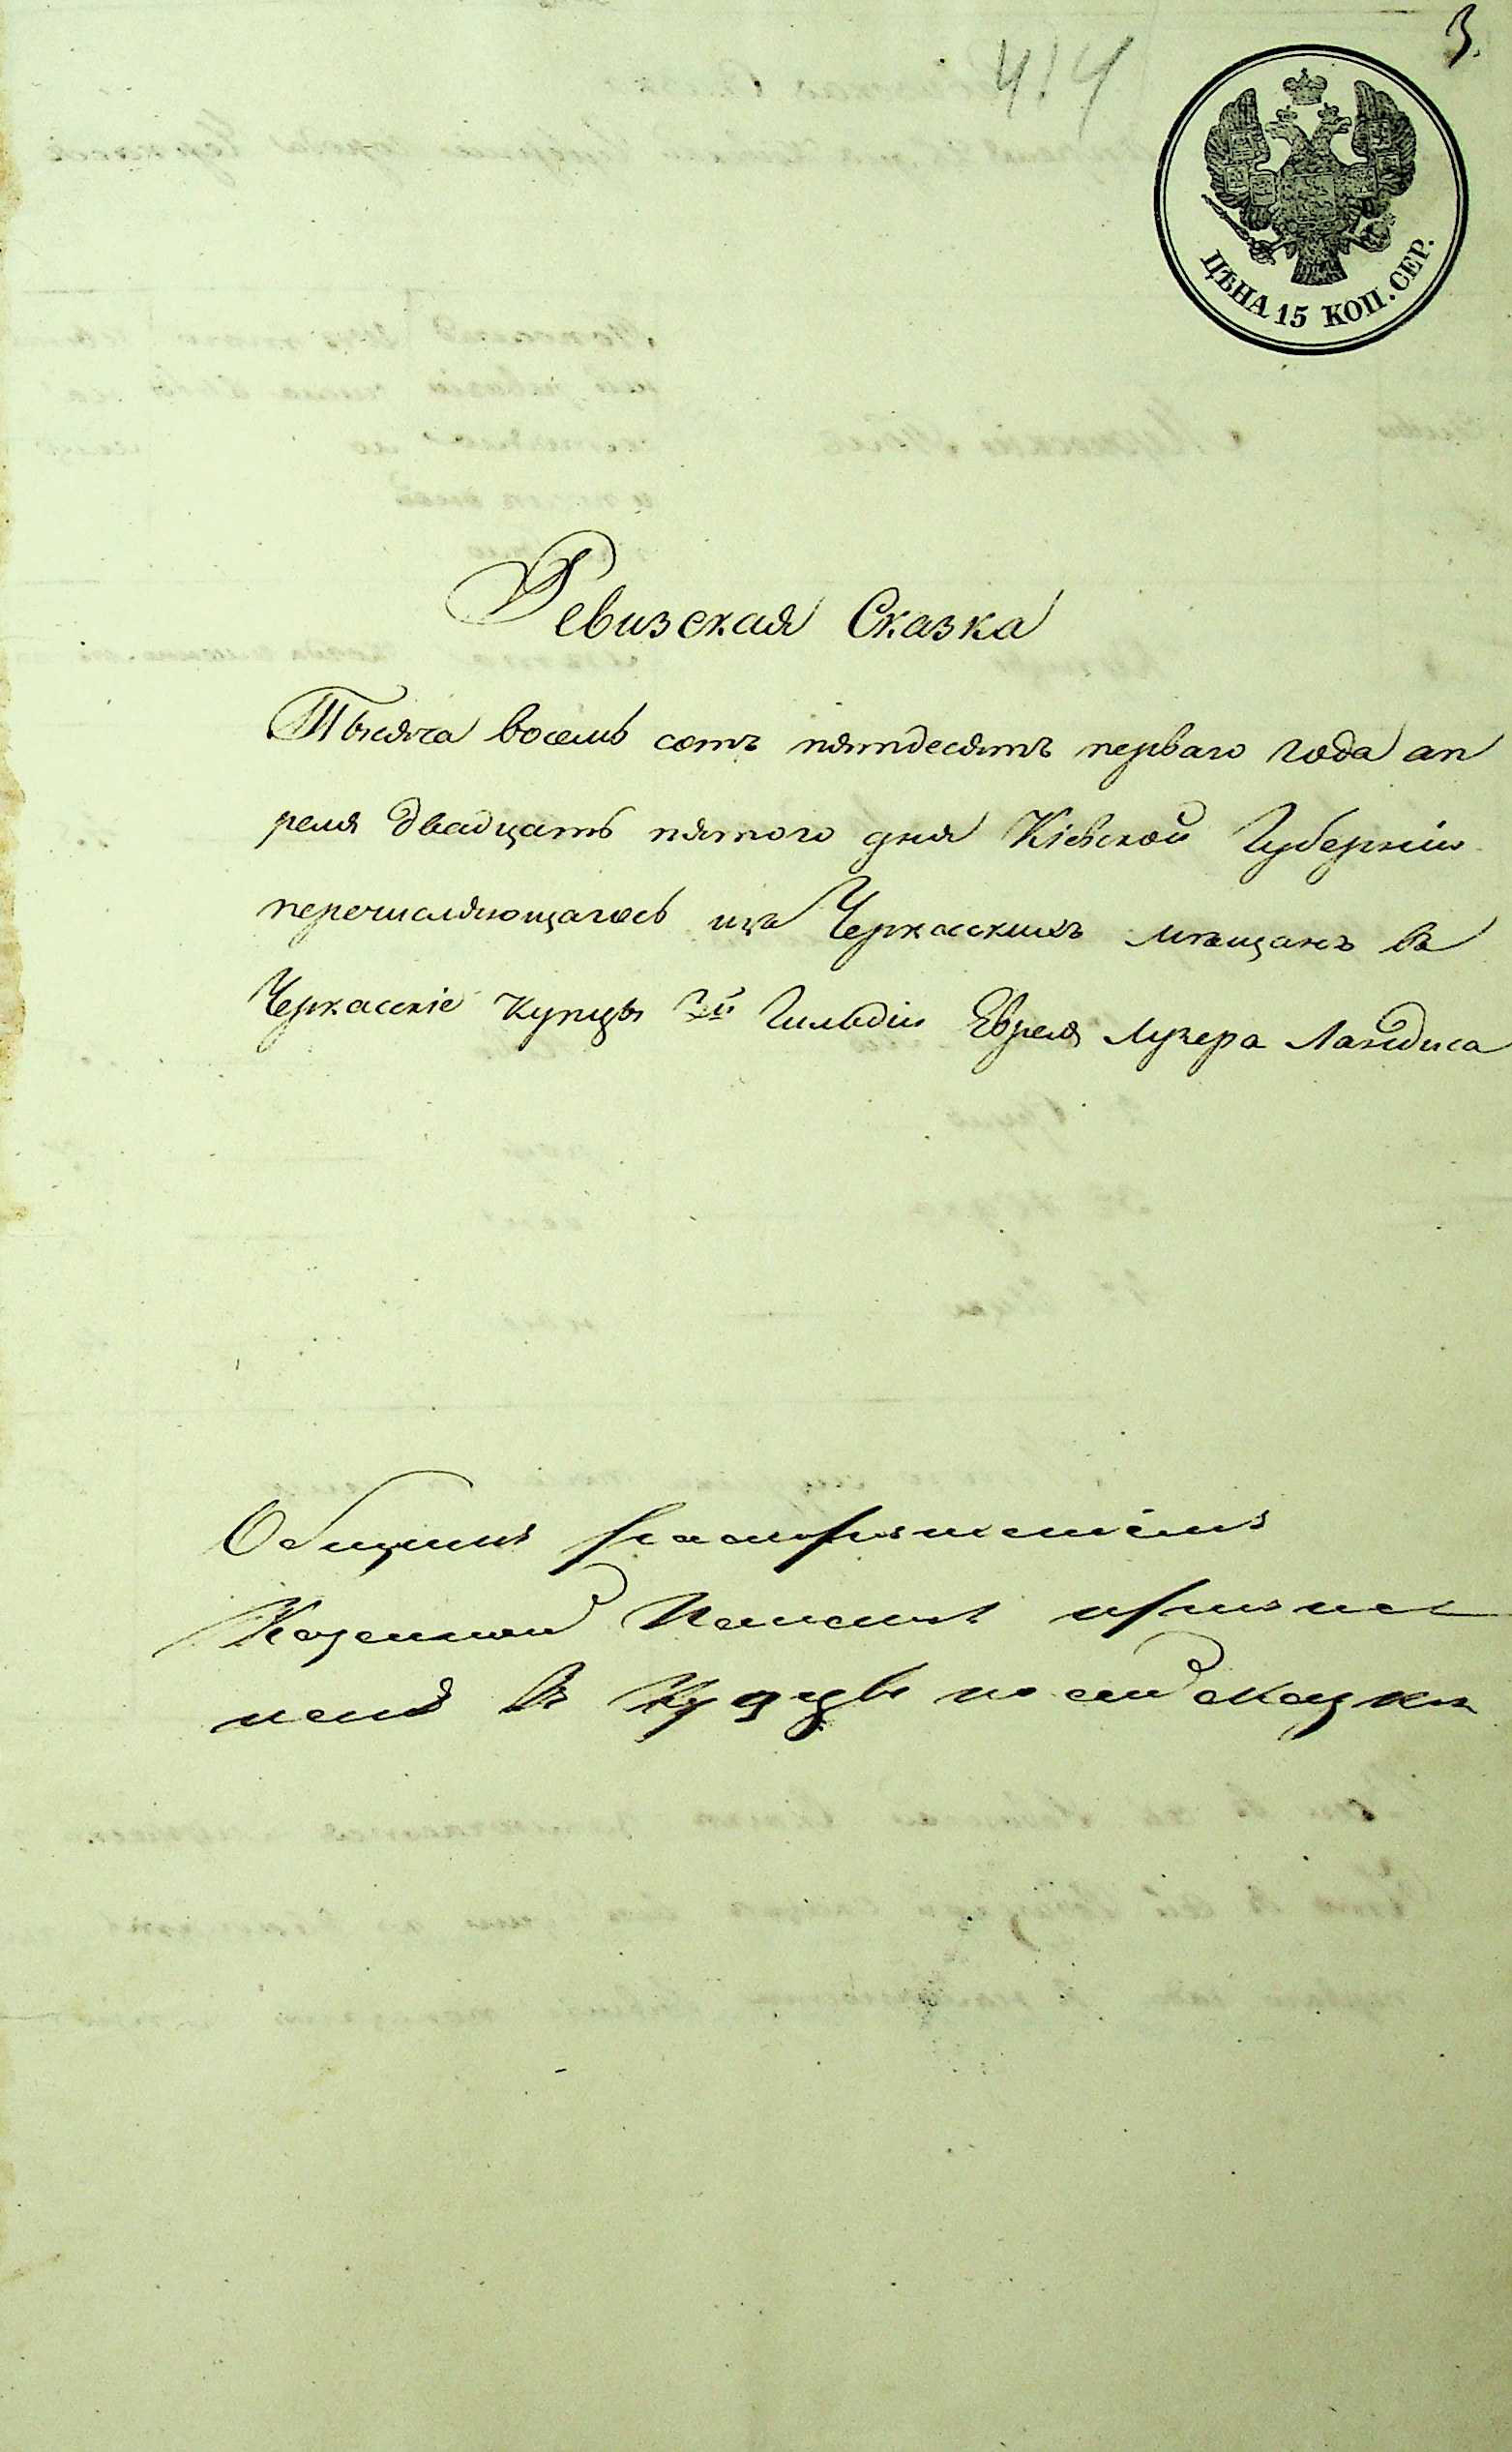 3.
414
ЦѢНА 15 КОП. СЕР.
Ревизская Сказка
Тысяча восемь сотъ пятдесятъ перваго года ап
реля двадцать пятого дня Кіевской Губерніи
перечисляющагось изъ Черкасскихъ мѣщанъ въ
Черкасскіе купцы 3й Гильдіи Еврея Лузера Ландиса
Общимъ
Казенной Палаты причис
ленъ въ Купцы по сей сказки